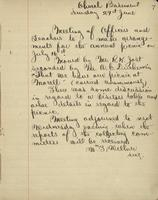 Church Basement
Sunday 29th June
Meeting of Officers and
Teachers to make arrange-
ments for the annual picnic on
July 16th
Moved by Mr R. K. Jost
seconded by Mr
That we have our picnic at
Morell (carried unanimously)
There was some discussion
in regard to a
other details in regard to
the picnic.
Meeting adjourned to meet
Wednesday evening when the
reports of the collecting com-
mittees will be received